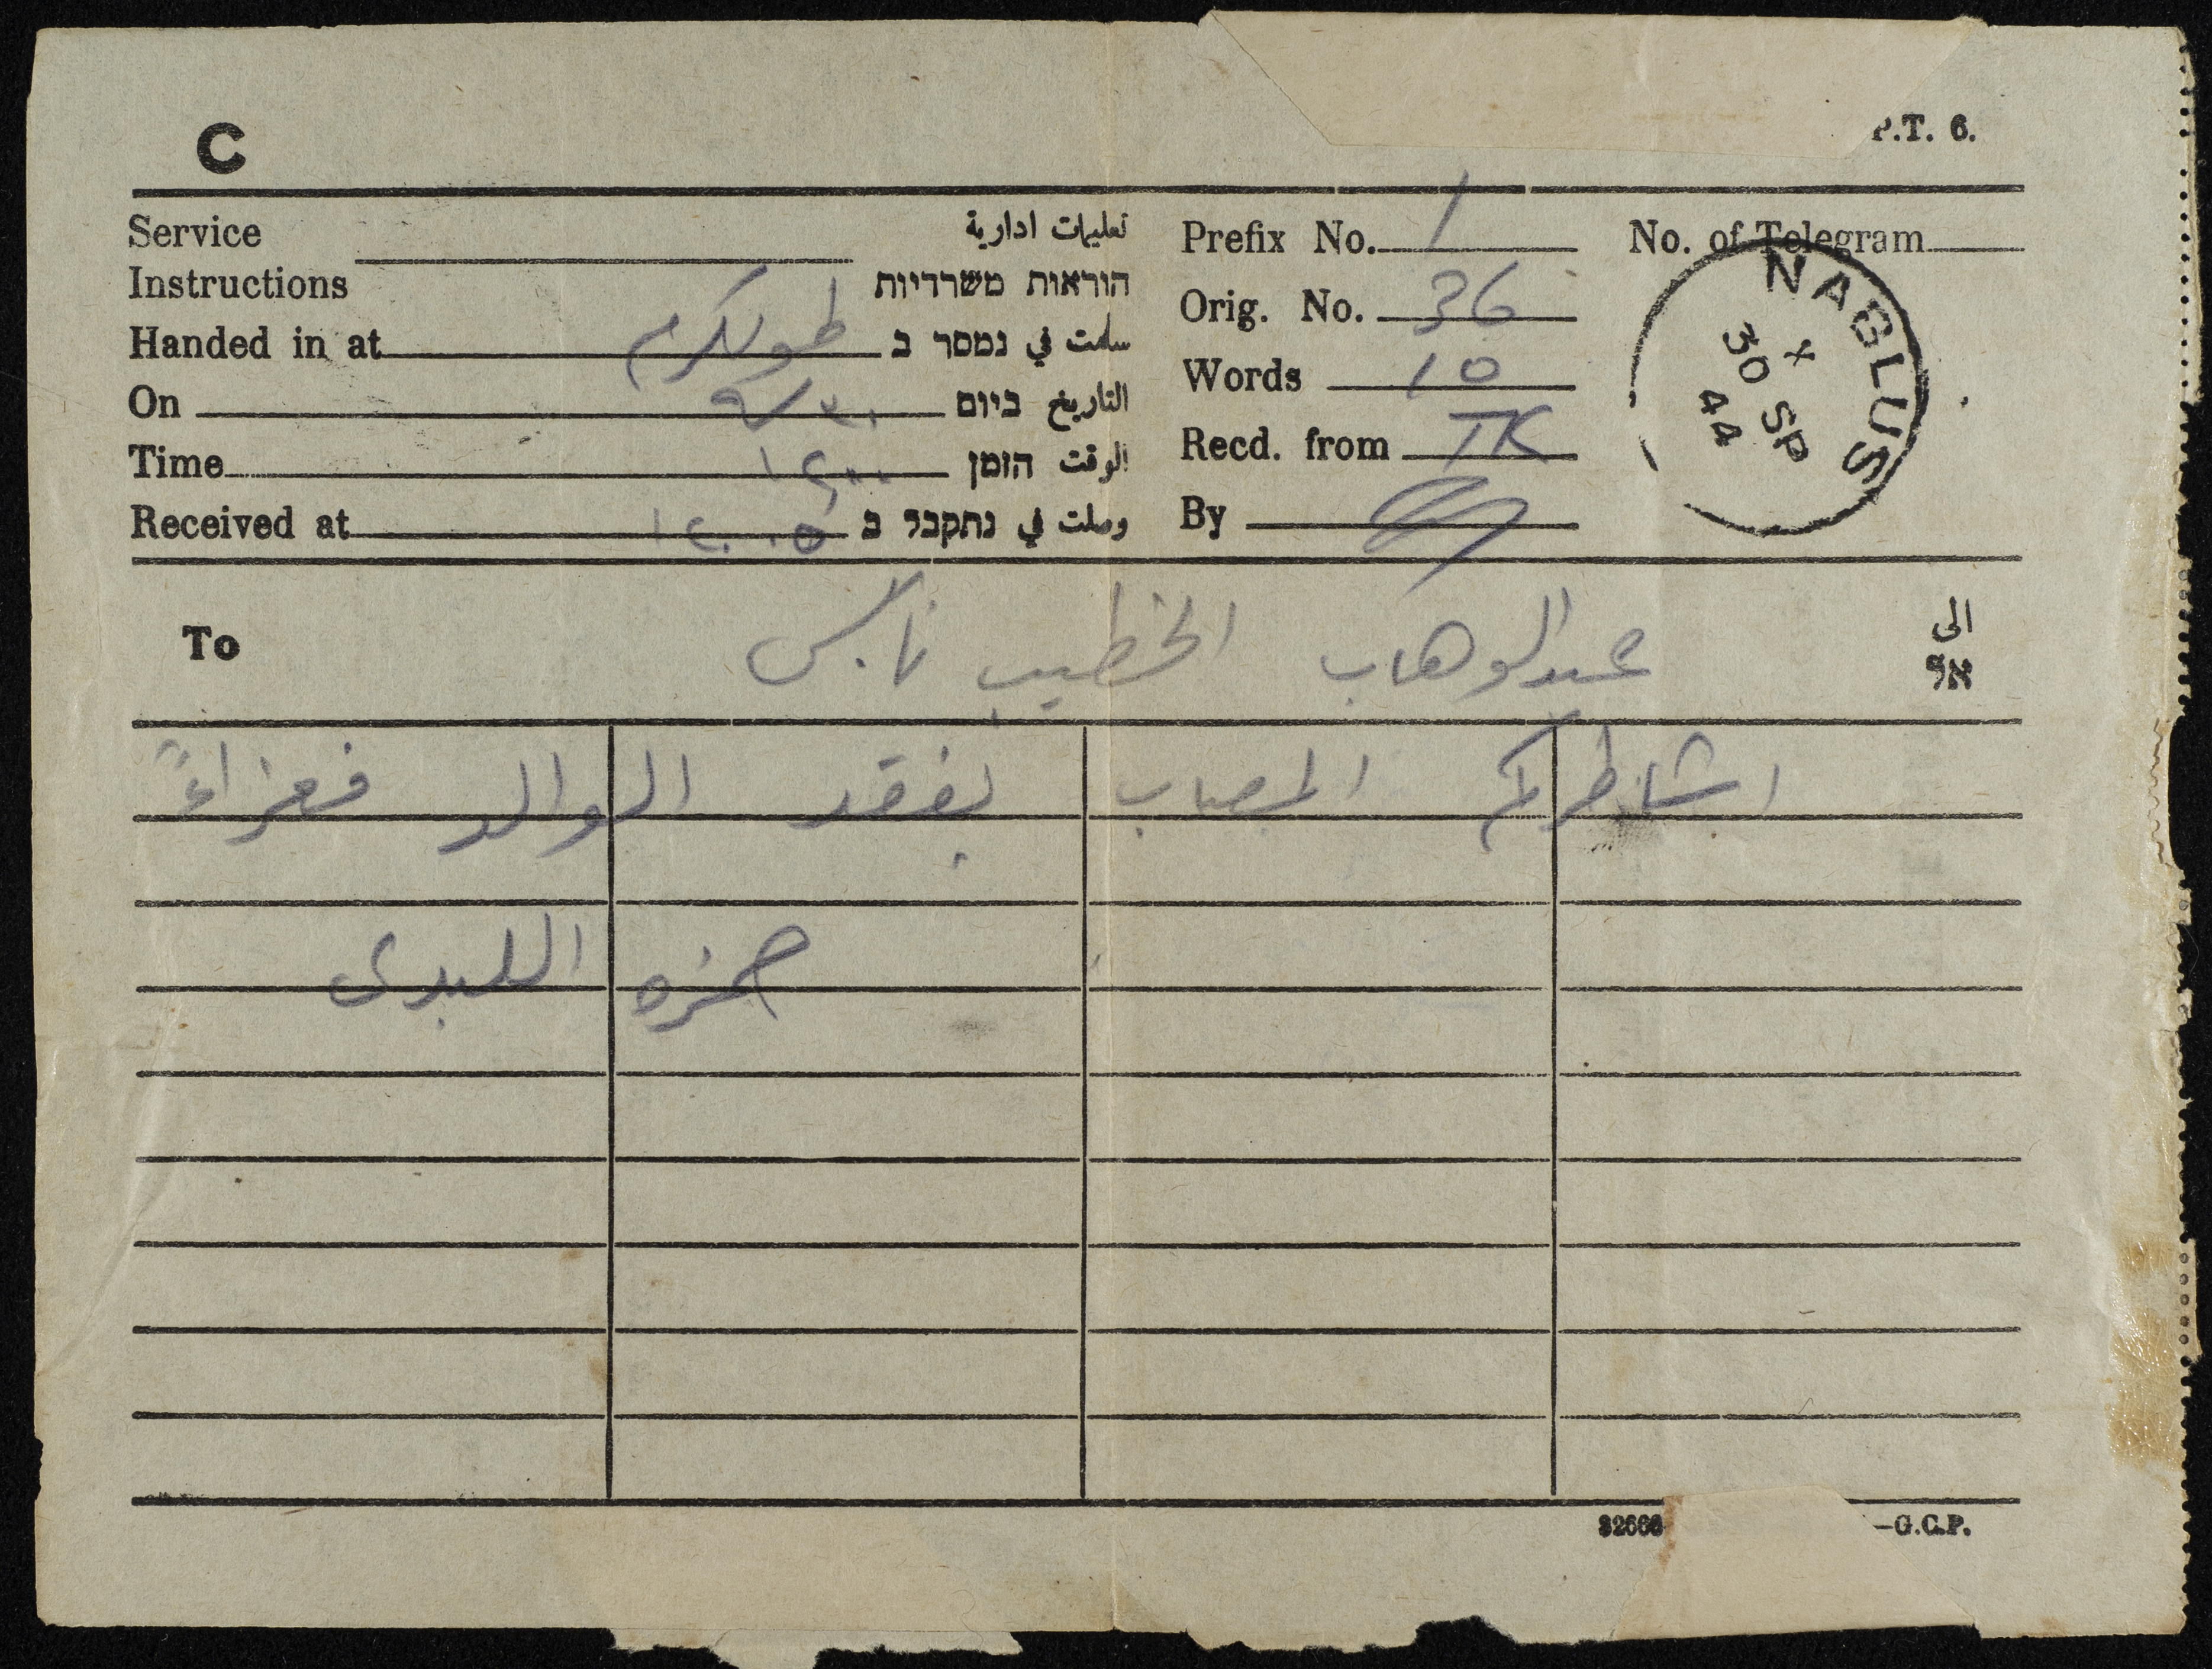 C
P.T. 6.
Service
Instructions
تعليمات ادارية
הוראות משרדיות
Handed in at طولكرم سلمت في נמסר ב
On ٣٠/٩ التاريخ ביום
Time الوقت הזמן
Received at وصلت في נתקבל ב
Prefix No. 1
Orig. No. 36
Words 10
Recd. from TK
By
No. of Telegram
NABLUS
X
30 SP
44
To عبد الوهاب الخطيب نابلس الى אל
اشاطركم المصاب بفقد الوالد فعزاءً
حمزه اللبدى
32666
—G.C.P.